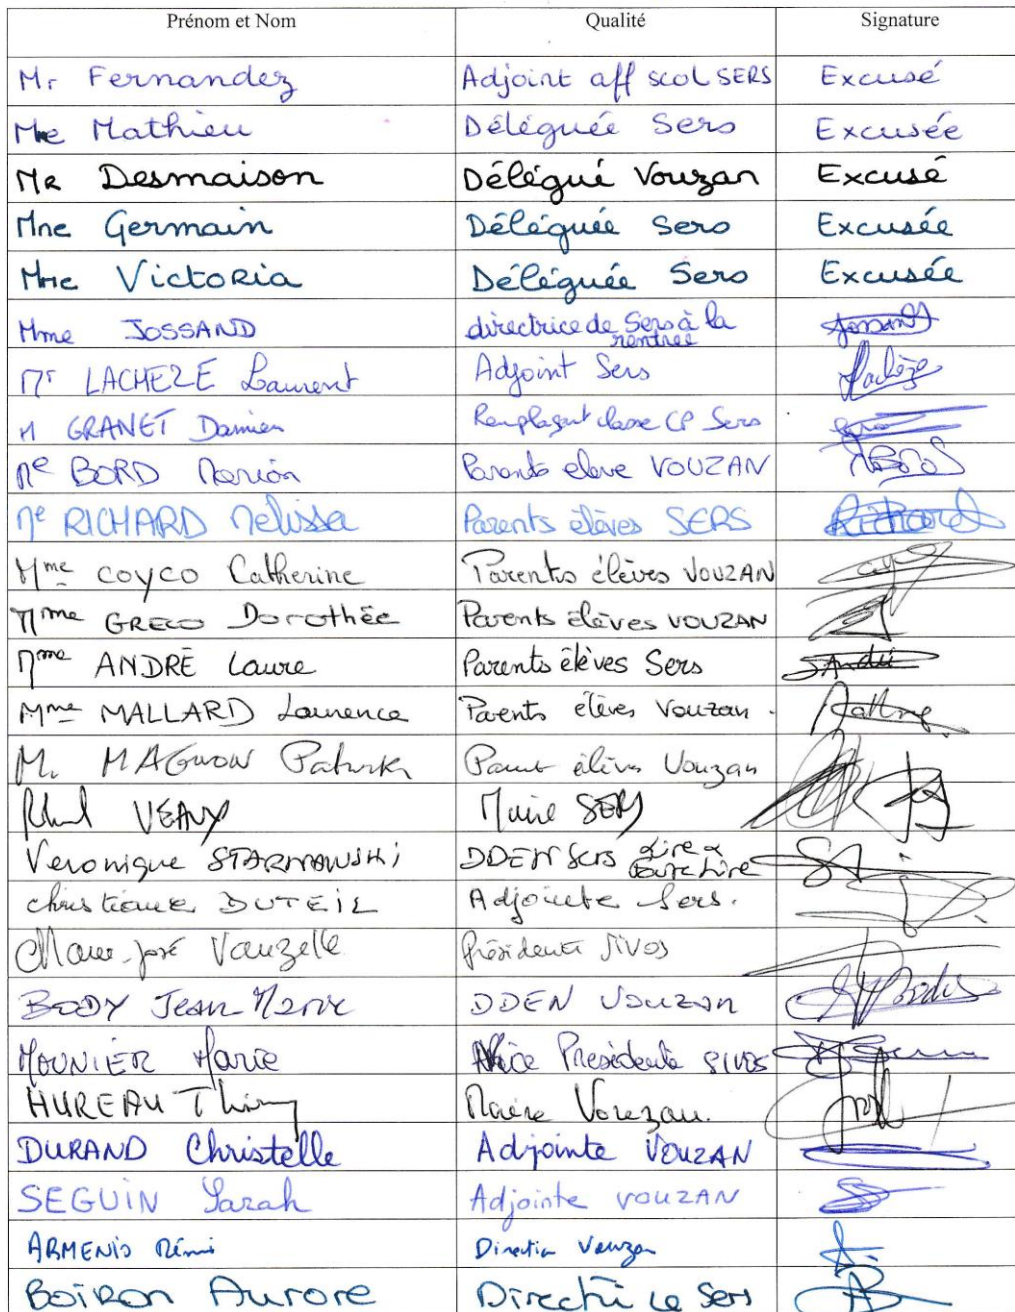 Prénom et Nom Qualité Signature
Mr Fernandez Adjoint aff scol SERS Excusé
Me Mathieu Déléguée Sers Excusée
Mr Desmaison Délégué Vouzan Excusé
Mme Germain Déléguée Sers Excusée
Mme Victoria Déléguée Sers Excusée
Mme JOSSAND directrice de Sers à la
rentrée
Mr LACHEZE Laurent Adjoint Sers
M GRANET Damien Remplaçant classe CP Sers
Me BORD Marion Parents eleve VOUZAN
Me RICHARD Melissa Parents élèves SERS Richard
Mme COYCO Catherine Parents élèves VOUZAN
Mme GRECO Dorothée Parents élèves VOUZAN
Mme ANDRÉ Laure Parents élèves Sers André
Mme MALLARD Laurence Parents élèves Vouzan.
M. MAGNON Patrick Parent élèves Vouzan
VEAUX Maire SERS
Veronique STARNAWSKI DDEN Sers Lire &
Faire Lire
christiane DUTEIL Adjointe Sers.
Marie-José Vauzelle Présidente SIVOS
BODY Jean-Marie DDEN Vouzan
MOUNIER Marie Vice Presidente SIVOS
HUREAU Thierry Maire Vouzan.
DURAND Christelle Adjointe VOUZAN
SEGUIN Sarah Adjointe VOUZAN
ARMENIO Rémi Direction Vouzan
BOIRON Aurore Directrice Sers